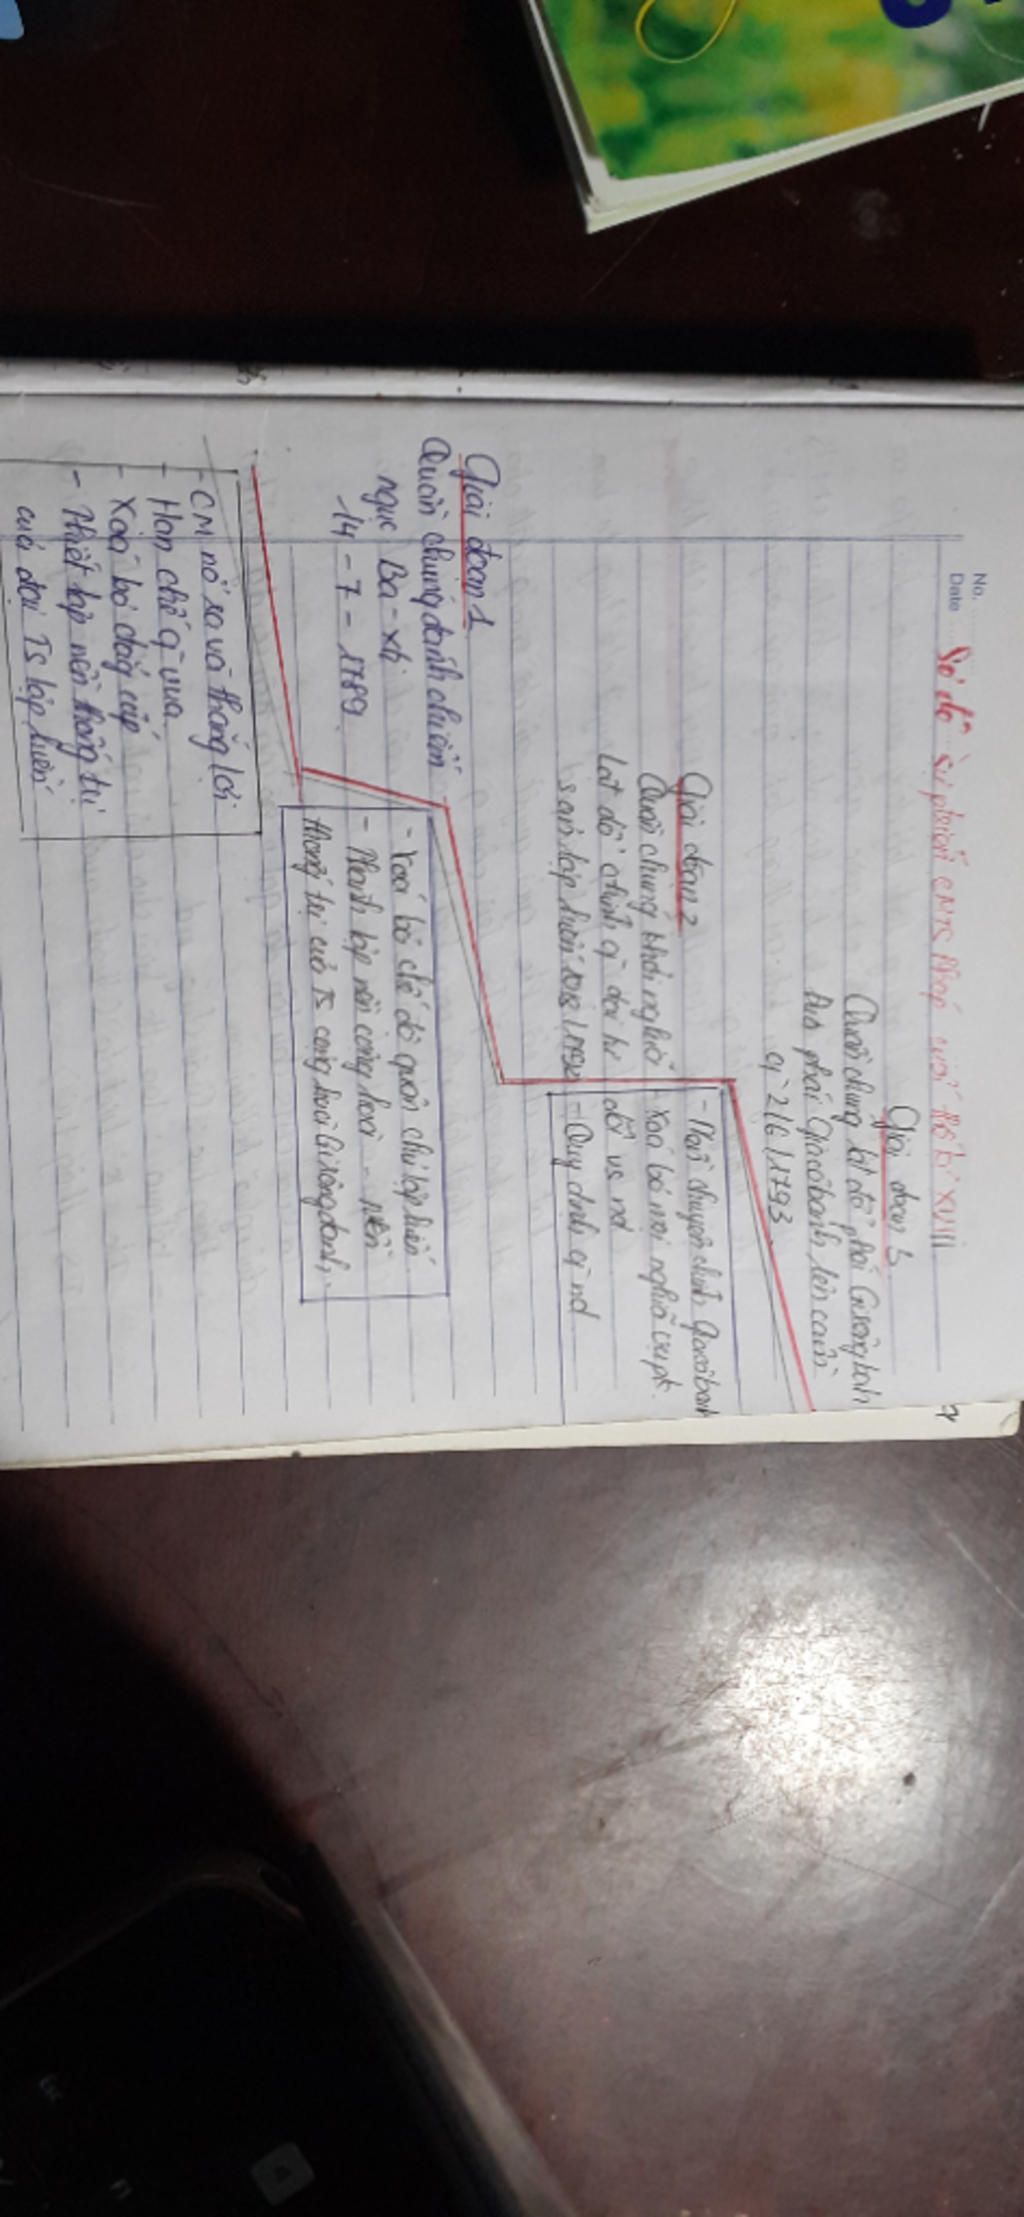 No.
Date
Sơ đồ sự phát triển CMTS Pháp cuối thế kỉ XVIII
Giai đoạn 3
Quần chúng lật đổ phái Girôngđanh
đưa phái Giacôbanh lên cầm
q' 2/6/1793
Giai đoạn 2
Quần chúng khởi nghĩa
Lật đổ chính q'
sản lập hiến 10/8/1792
- Nền chuyên chính Giacôbanh
xoá bỏ mọi nghĩa vụ pk
đối vs nd
- Quy định q' nd
Giai đoạn 1
Quần chúng đánh chiếm
ngục Ba-xti
14-7-1789
- Xoá bỏ chế độ quân chủ lập hiến
- Thành lập nền cộng hoà - nền
thống trị của TS cộng hoà Girôngđanh
- CM nổ ra và thắng lợi
- Hạn chế q' vua
- Xoá bỏ đẳng cấp
- Thiết lập nền thống trị
của đại TS lập hiến